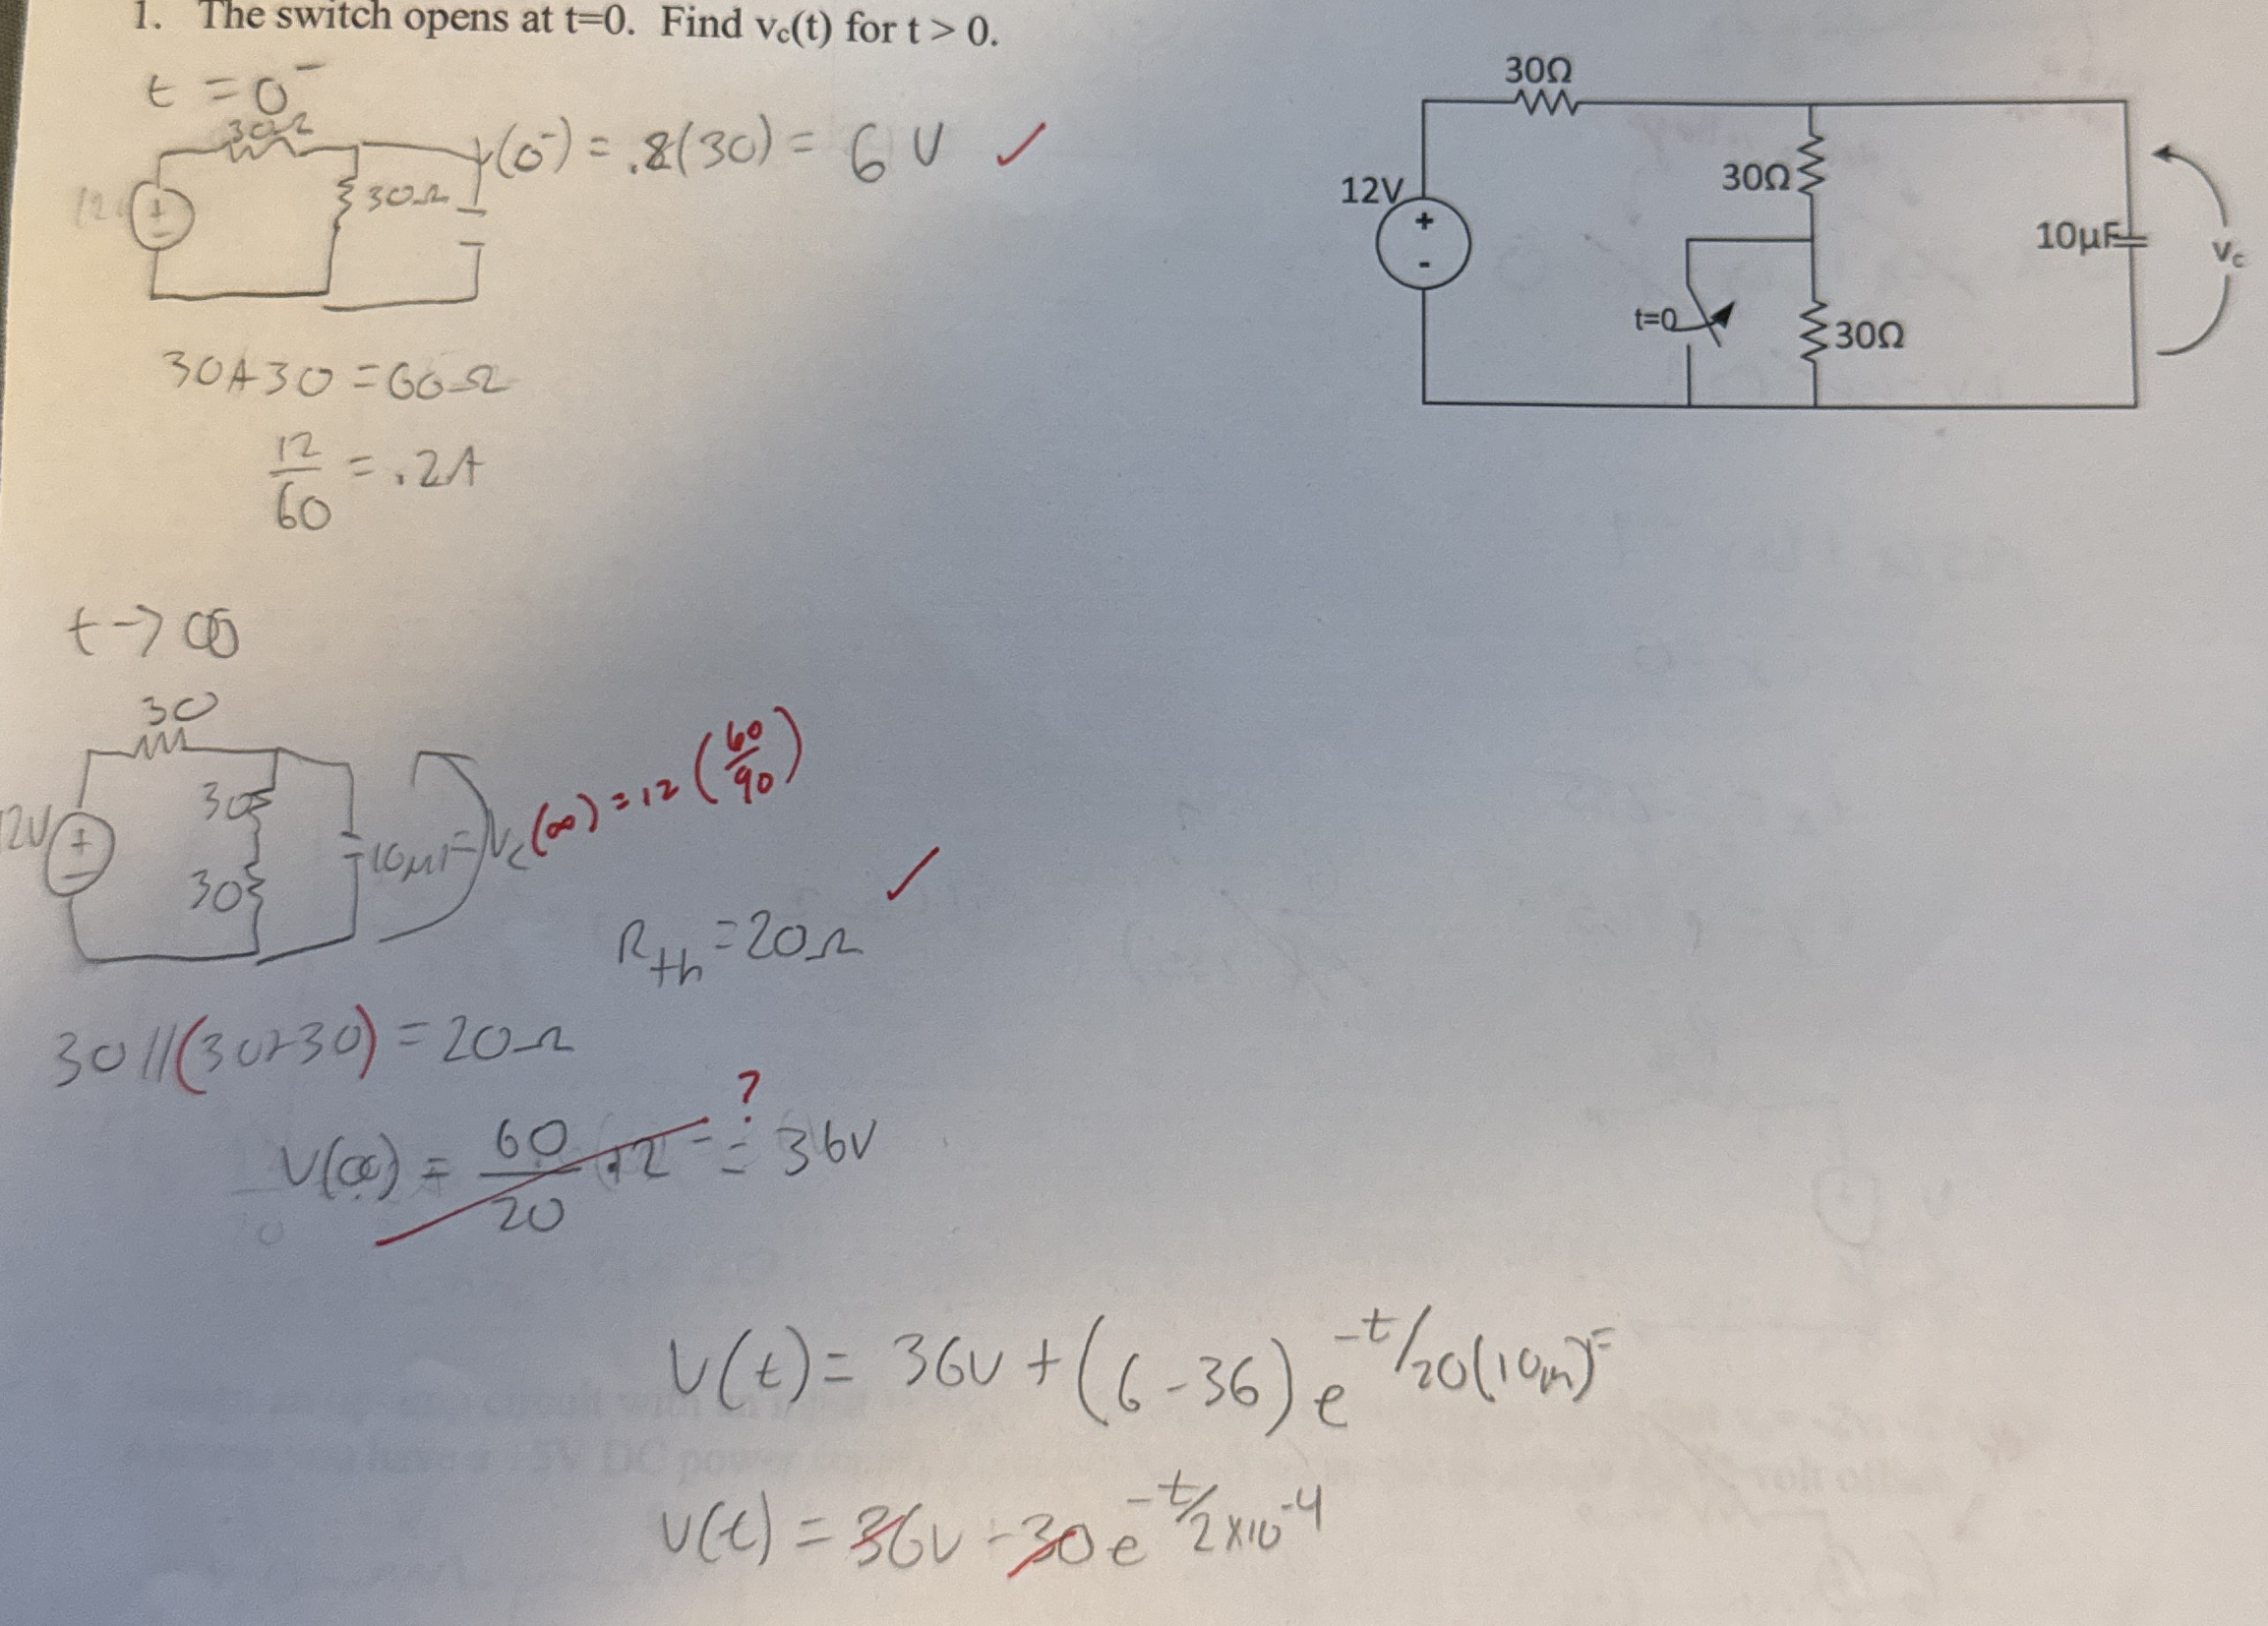 1. The switch opens at t=0. Find vc(t) for t > 0.
t = 0⁻
30Ω
V(0⁻) = .2(30) = 6 V ✓
12V
+
-
30Ω
30Ω
12V
+
-
30Ω
t=0
30Ω
10µF
vc
30+30 = 60Ω
12/60 = .2A
t → ∞
30
12V
+
-
30
30
10µF
Vc (∞) = 12 (60/90)
Rth = 20Ω ✓
30//(30+30) = 20Ω
?
V(∞) = 60/20 · 12 = 36V
V(t) = 36V + (6-36) e^-t/20(10m) =
V(t) = 36V - 30 e^-t/2×10^-4